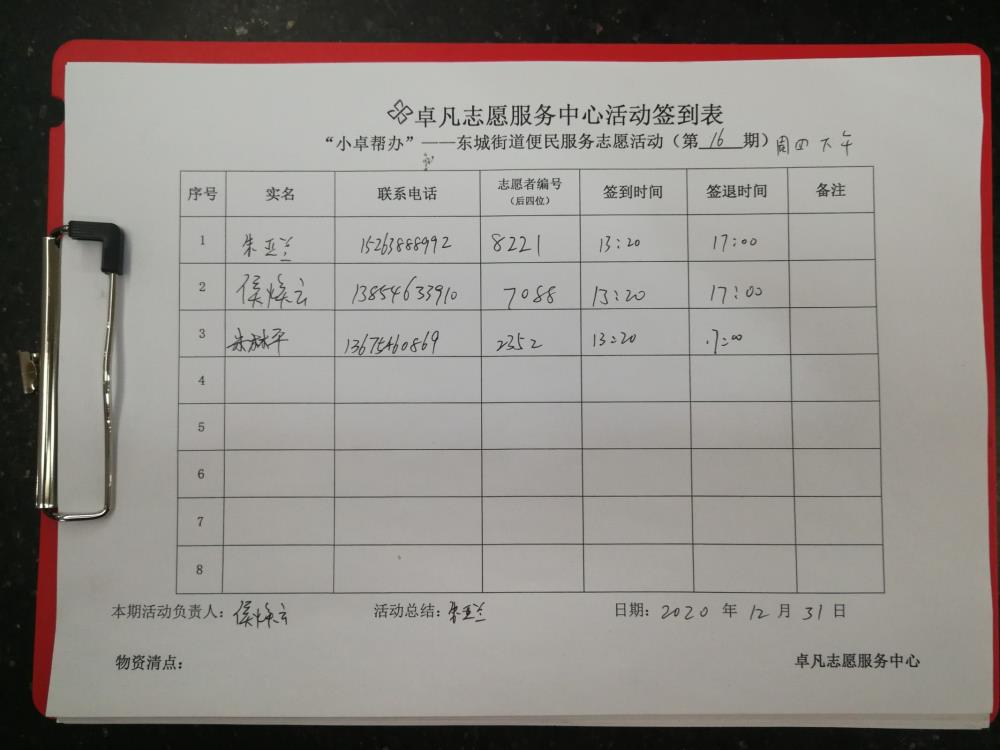 卓凡志愿服务中心活动签到表
“小卓帮办”——东城街道便民服务志愿活动（第 16 期）周四下午
序号 实名 联系电话 志愿者编号（后四位） 签到时间 签退时间 备注
1 朱亚兰 15263888992 8221 13:20 17:00
2 侯焕云 13854633910 7088 13:20 17:00
3 朱林平 13675460869 2352 13:20 17:00
4
5
6
7
8
本期活动负责人：侯焕云 活动总结：朱亚兰 日期：2020 年 12 月 31 日
物资清点： 卓凡志愿服务中心